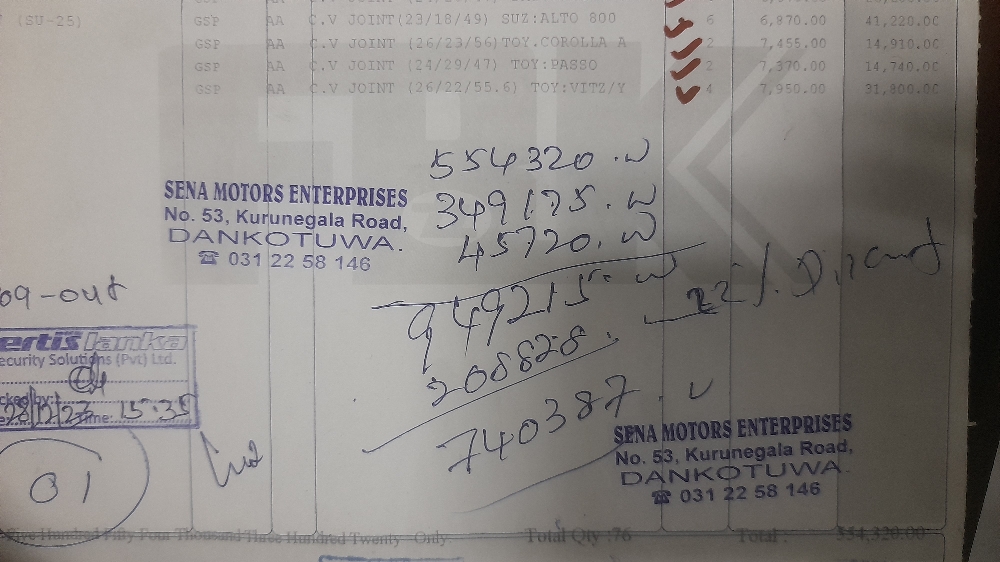 (SU-25)
C.V JOINT(23/18/49) SUZ:ALTO 800 6 6,870.00 41,220.00
GSP AA C.V JOINT (26/23/56)TOY.COROLLA A 2 7,455.00 14,910.00
GSP AA C.V JOINT (24/29/47) TOY:PASSO 2 7,370.00 14,740.00
GSP AA C.V JOINT (26/22/55.6) TOY:VITZ/Y 4 7,950.00 31,800.00
554320.00
349175.00
45720.00
949215.00
22%
208828
740387
SENA MOTORS ENTERPRISES
No. 53, Kurunegala Road,
DANKOTUWA.
☎ 031 22 58 146
09-out
ertis lanka
ecurity Solutions (Pvt) Ltd.
cked by:
28/12/23 Time: 15:35
01
SENA MOTORS ENTERPRISES
No. 53, Kurunegala Road,
DANKOTUWA.
☎ 031 22 58 146
Five Hundred Fifty Four Thousand Three Hundred Twenty Only. Total Qty :76 Total : 554,320.00